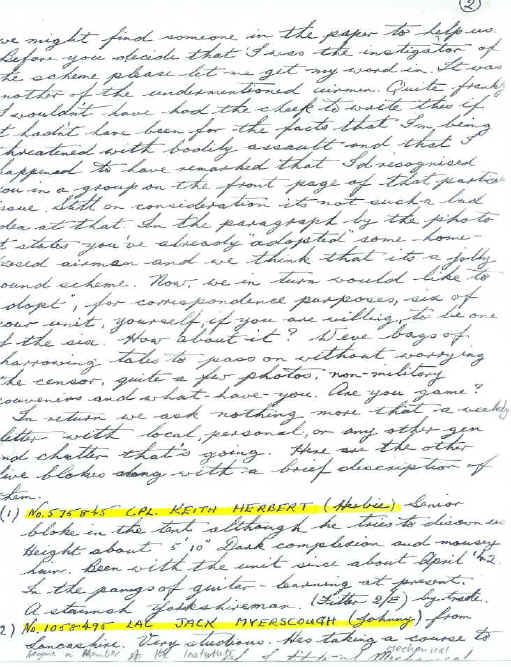 (2)
we might find someone in the paper to help us.
Before you decide that I was the instigator of
the scheme please let me get my word in. It was
another of the undermentioned airmen. Quite frankly
I wouldn't have had the cheek to write this if
t hadn't have been for the facts that I'm being
threatened with bodily assault and that I
happened to have remarked that I'd recognised
you in a group on the front page of that partic
issue. Still on consideration its not such a bad
idea at that. In the paragraph by the photo
t states you've already "adopted" some home-
based airman and we think that its a jolly
sound scheme. Now, we in turn would like to
adopt", for correspondence purposes, six of
your unit, yourself, if you are willing, to be one
of the six. How about it? We've bags of
harrowing tales to pass on without worrying
the censor, quite a few photos, non-military
souvenirs and what-have-you. Are you game?
In return we ask nothing more that a weekly
letter with local, personal, or any other gen
and chatter that's going. Here are the other
five blokes along with a brief description of
them.
(1) No. 575845 CPL. KEITH HERBERT (Herbie) Senior
bloke in the tent although he tries to disown us
Height about 5'10" Dark complexion and mousey
hair. Been with the unit since about April '42.
In the pangs of guitar-learning at present.
A staunch Yorkshireman. (Fitter 2/E) by trade.
2) No. 1058495 LAC JACK MYERSCOUGH (Johnny) from
Lancashire. Very studious. Has taking a course to